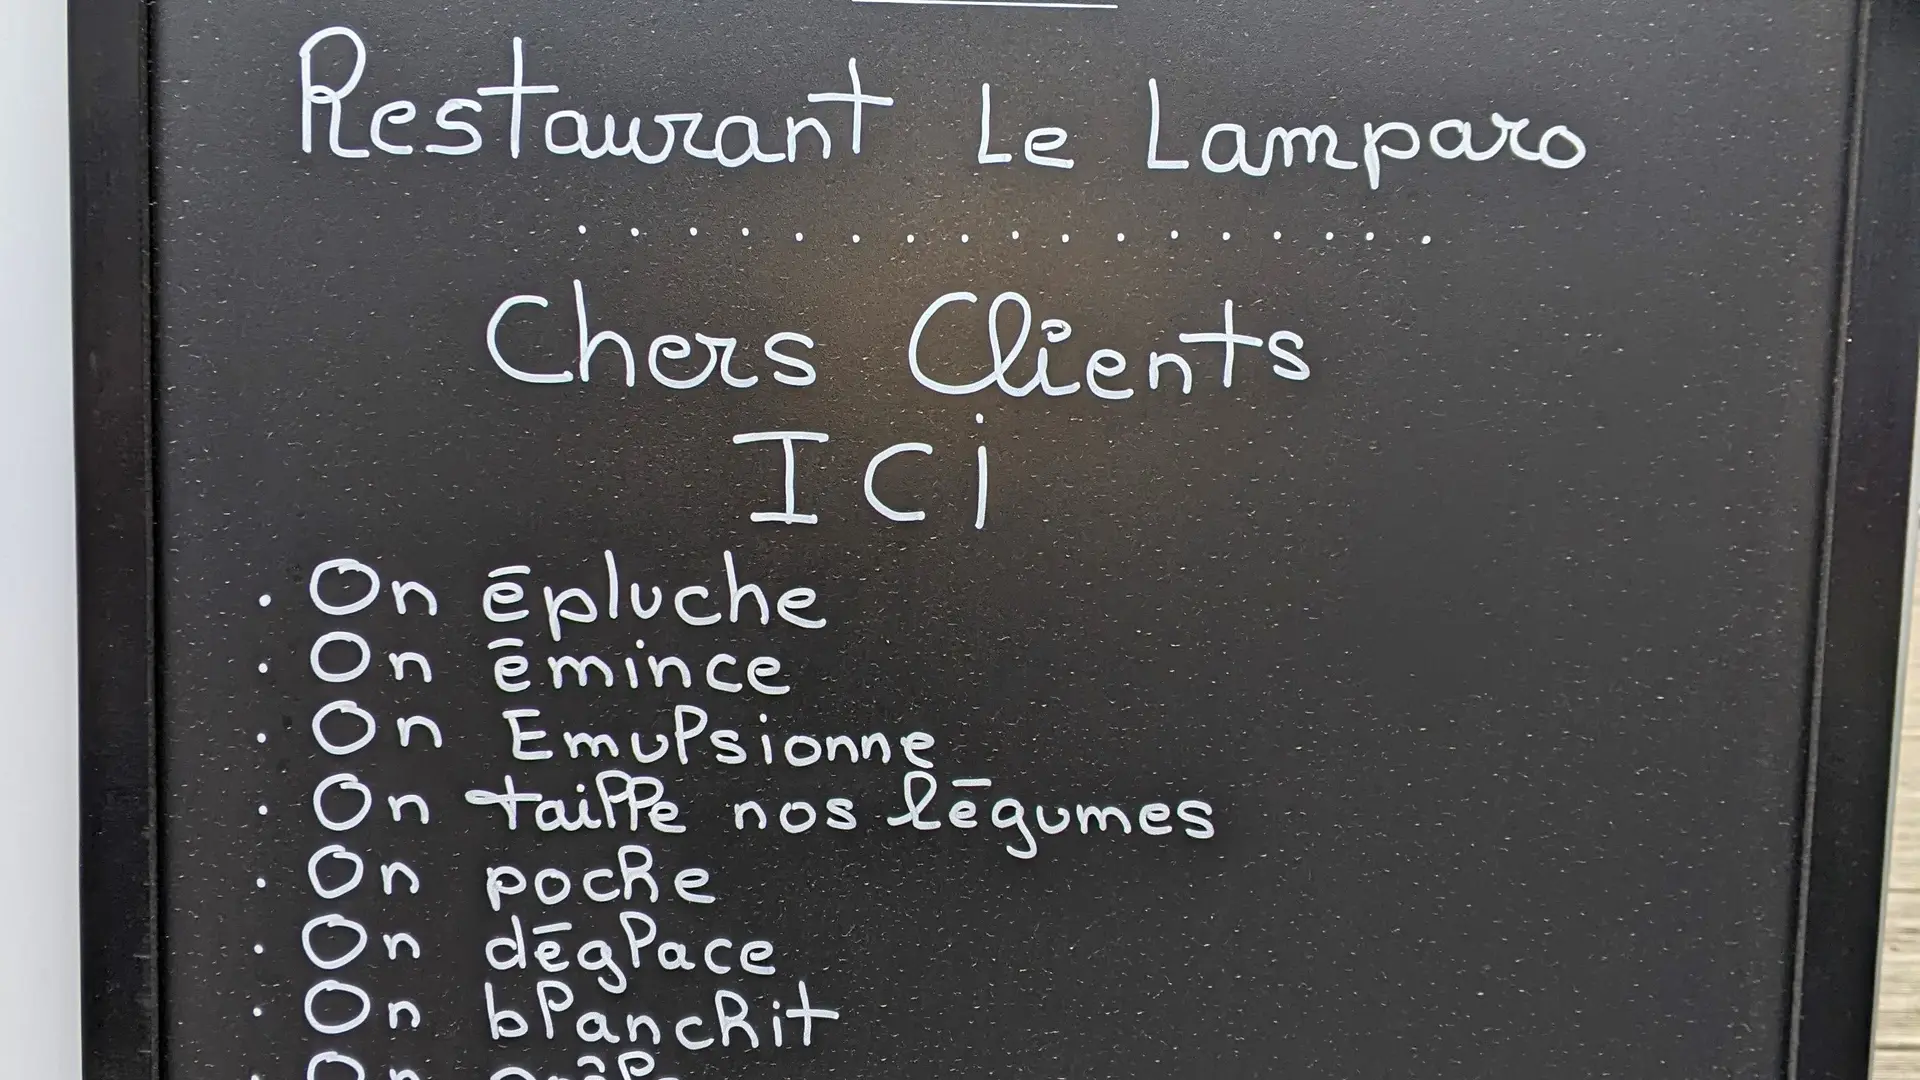 Restaurant Le Lamparo
. . . . . . . . . . . . . . . . .
Chers Clients
ICi
. On épluche
. On émince
. On Emulsionne
. On taille nos légumes
. On poche
. On déglace
. On blanchit
. On